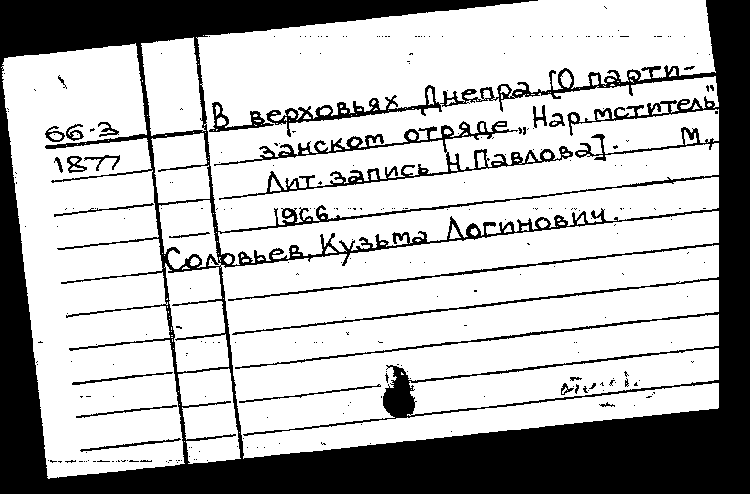 В верховьях Днепра. [О парти-
66-3
занском отряде „Нар. мститель"
1877
Лит. запись Н. Павлова]. М.,
1966.
Соловьев, Кузьма Логинович.